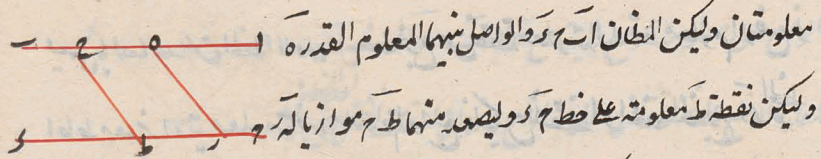 معلومتان وليكن الخطان اب حء والواصل بينهما المعلوم القدر ه
وليكن نقطة ط معلومة على خط حء وليصر منها ط ح موازيا له ر
ا ه ح ب
ح ر ط ء